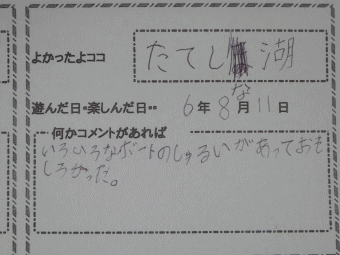 よかったよココ たてしな湖
遊んだ日・楽しんだ日・・ 6年8月11日
何かコメントがあれば
いろいろなボートのしゅるいがあっておも
しろかった。